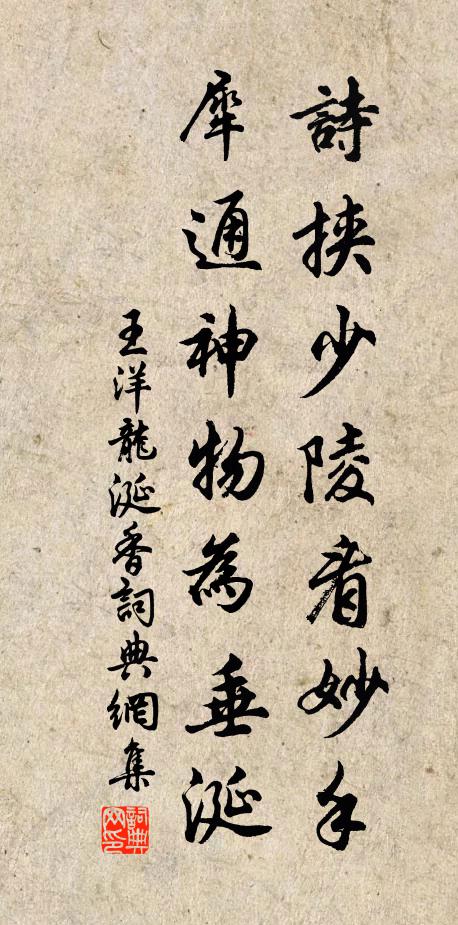 詩挾少陵看妙手
犀通神物為垂涎
王洋龍涎香詞典網集
詞典網印